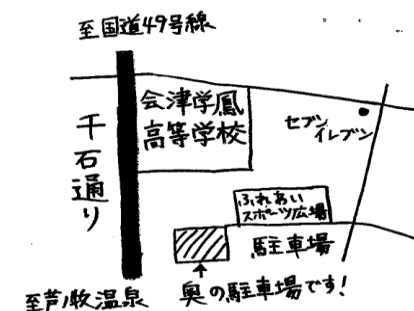 至国道49号線
会津学鳳
高等学校
千石通り
セブン
イレブン
ふれあい
スポーツ広場
駐車場
至芦ノ牧温泉
奥の駐車場です!